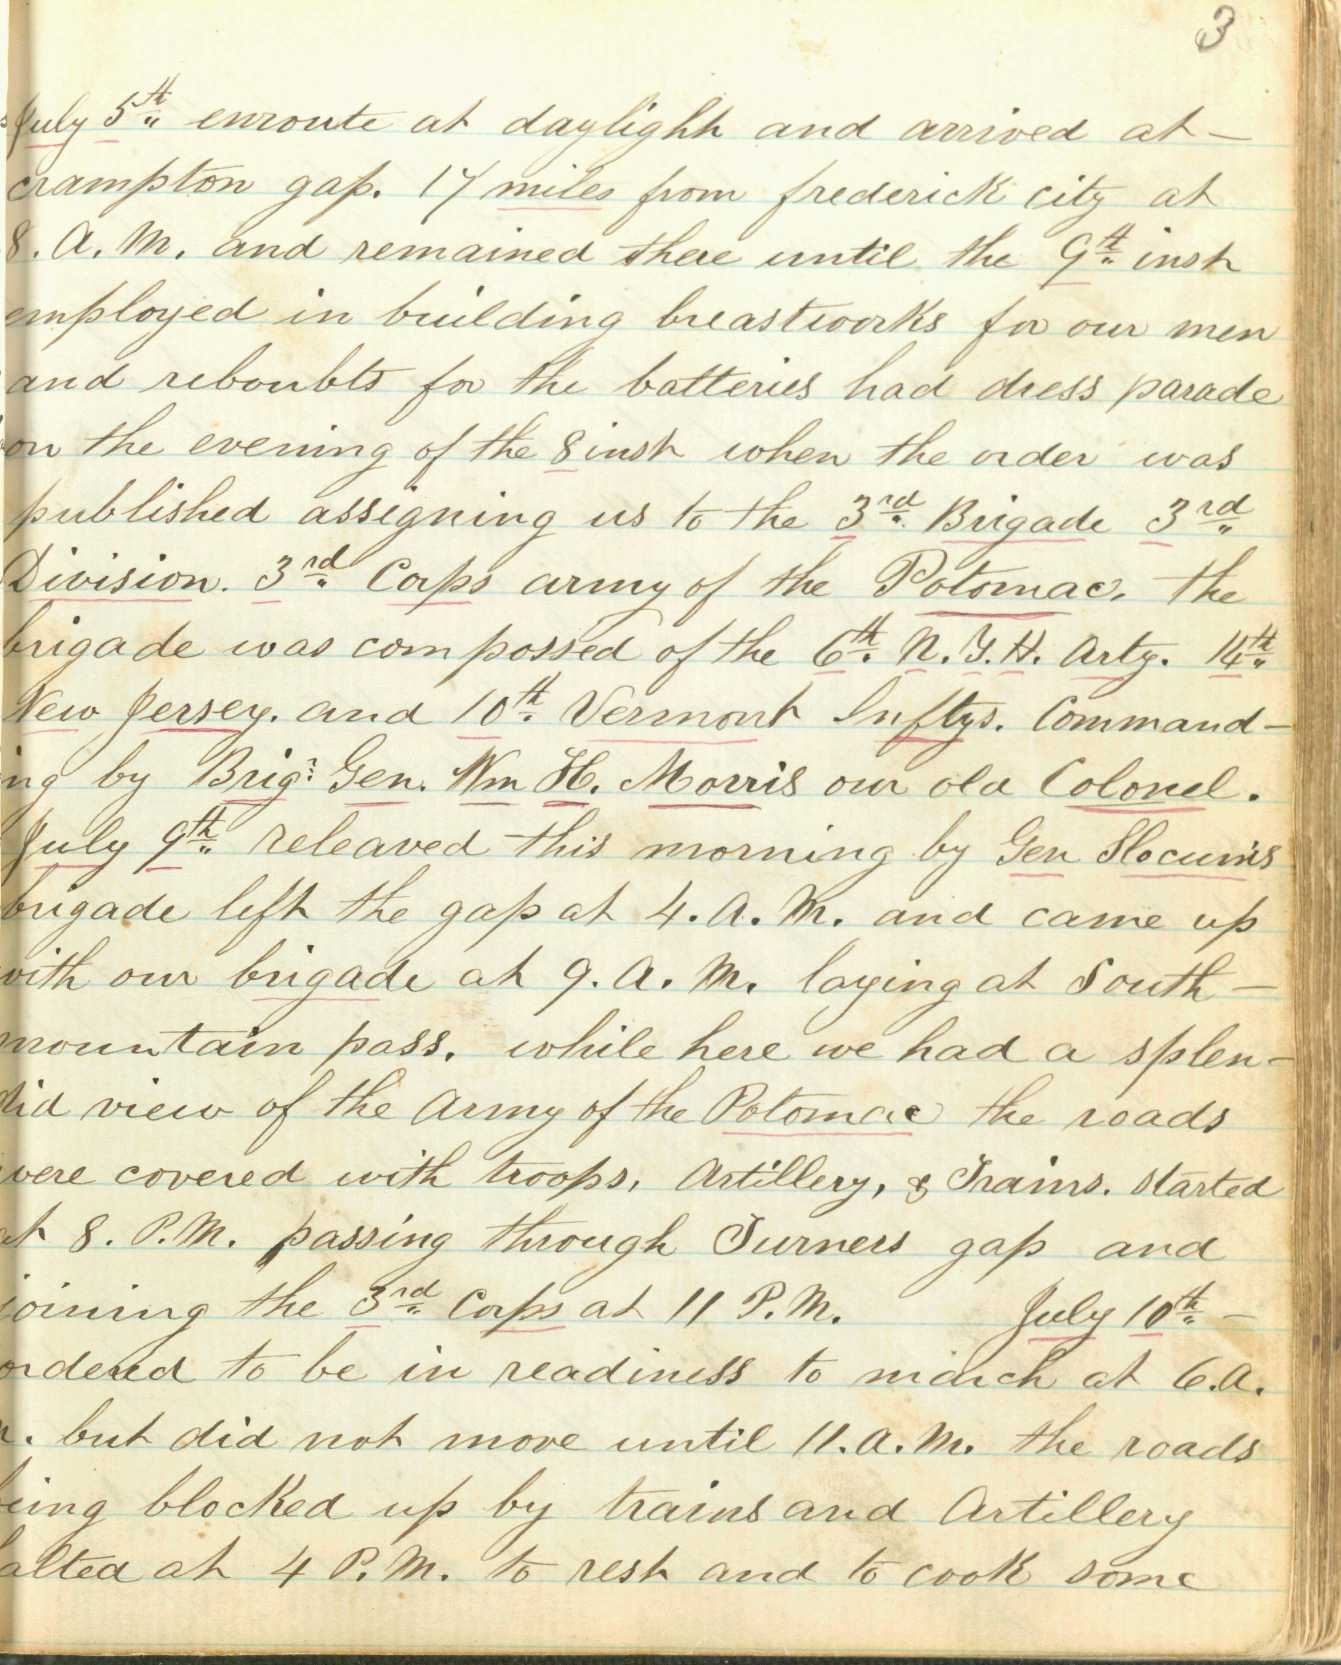 3
July 5th enroute at daylight and arrived at –
crampton gap. 17 miles from frederick city at
8. A. M. and remained there until the 9th inst
employed in building breastworks for our men
and reboubts for the batteries had dress parade
on the evening of the 8 inst when the order was
published assigning us to the 3rd Brigade 3rd
Division. 3rd Corps army of the Potomac. the
brigade was compossed of the 6th N. Y. H. Arty. 14th
New Jersey. and 10th Vermont Inftys. Command–
ing by Brigr. Gen. Wm H. Morris our old Colonel.
July 9th releaved this morning by Gen Slocum's
brigade left the gap at 4. A. M. and came up
with our brigade at 9. A. M. laying at South –
mountain pass. while here we had a splen–
did view of the Army of the Potomac the roads
were covered with troops, Artillery, & Trains. started
at 8. P.M. passing through Turners gap and
joining the 3rd Corps at 11 P.M. July 10th –
ordered to be in readiness to march at 6. A.
M. but did not move until 11. A. M. the roads
being blocked up by trains and Artillery
halted at 4 P. M. to rest and to cook some